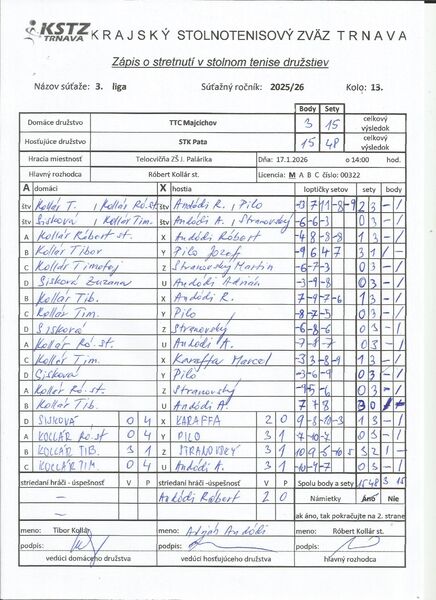 KSTZ TRNAVA KRAJSKÝ STOLNOTENISOVÝ ZVÄZ TRNAVA
Zápis o stretnutí v stolnom tenise družstiev
Názov súťaže: 3. liga Súťažný ročník: 2025/26 Kolo: 13.
Body Sety
Domáce družstvo TTC Majcichov 3 15 celkový výsledok
Hosťujúce družstvo STK Pata 15 48 celkový výsledok
Hracia miestnosť Telocvičňa ZŠ J. Palárika Dňa: 17.1.2026 o 14:00 hod.
Hlavný rozhodca Róbert Kollár st. Licencia: M A B C číslo: 00322
A domáci X hostia loptičky setov sety body
štv Kollár T., Kollár Ró. st. štv Andódi R., Pilo -3 7 11 -8 -9 2 3 - /
štv Sisková, Kollár Tim. štv Andódi A., Stranovský -6 -6 -3 0 3 - /
A Kollár Róbert st. X Andódi Róbert -4 8 -8 -8 1 3 - /
B Kollár Tibor Y Pilo Jozef -9 6 4 7 3 1 /
C Kollár Timotej Z Stranovský Martin -6 -7 -3 0 3 - /
D Sisková Zuzana U Andódi Adrián -3 -9 -8 0 3 - /
B Kollár Tib. X Andódi R. 7 -9 -7 -6 1 3 - /
C Kollár Tim. Y Pilo -8 -7 -5 0 3 - /
D Sisková Z Stranovský -6 -8 -6 0 3 - /
A Kollár Ró. st. U Andódi A. -7 -8 -7 0 3 - /
C Kollár Tim. X Karaffa Marcel -3 3 -8 -9 1 3 - /
D Sisková Y Pilo -3 -6 -9 0 3 - /
A Kollár Ró. st. Z Stranovský 0 3 - /
B Kollár Tib. U Andódi A. 7 7 8 3 0
D SISKOVÁ 0 4 X KARAFFA 2 0 1 3 - /
A KOLLÁR RÓ. ST 0 4 Y PILO 3 1 0 3 - /
B KOLLÁR TIB. 3 1 Z STRANOVSKÝ 3 1 3 2 /
C KOLLÁR TIM. 0 4 U Andódi A. 3 1 0 3 - /
striedaní hráči - úspešnosť V P striedaní hráči - úspešnosť V P Spolu body a sety 15 48 3 15
Andódi Róbert 2 0 Námietky Áno Nie
ak áno, tak pokračujte na 2. strane
meno: Tibor Kollár meno: Adrián Andódi Róbert Kollár st.
podpis: podpis: podpis:
vedúci domáceho družstva vedúci hosťujúceho družstva hlavný rozhodca